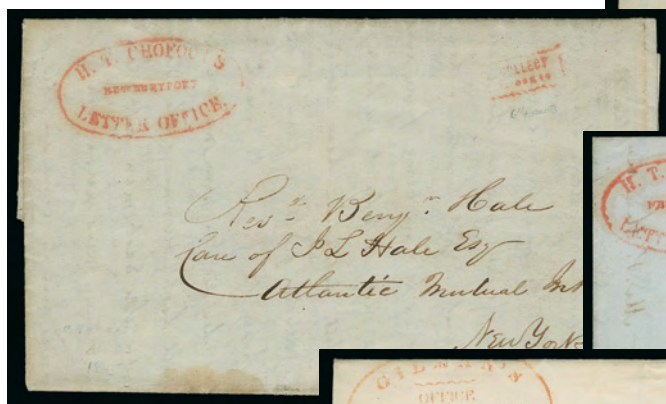 H. T. CROFOOT'S
NEWBURYPORT
LETTER OFFICE.
Revd. Benjn. Hale
Care of J L Hale Esq
Atlantic Mutual Ins
New York
H. T.
GILMAN'S
OFFICE